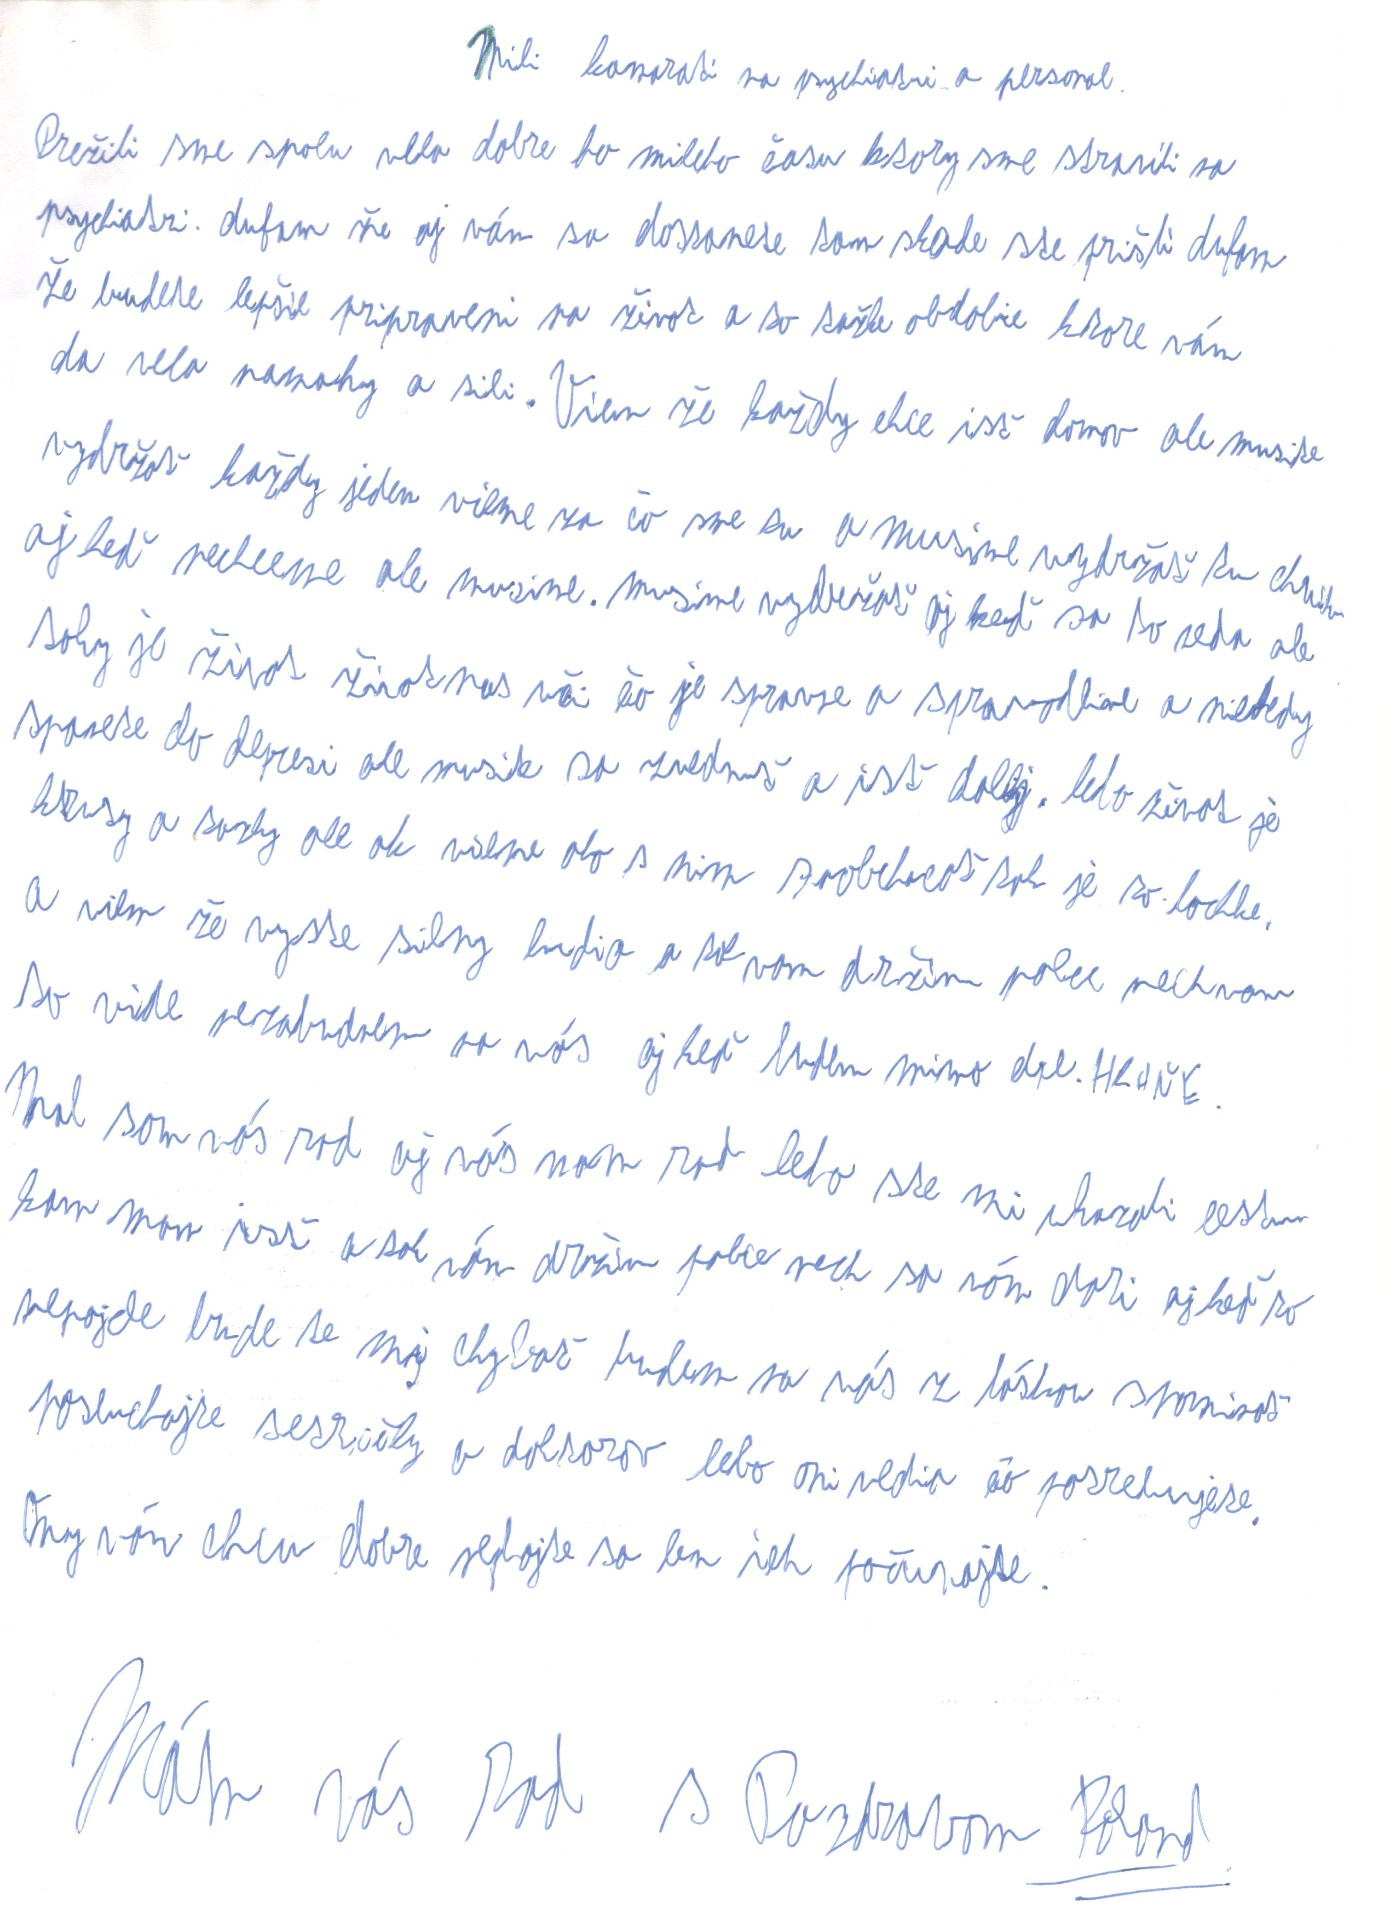 Mili kamarati na psychiatrii a personal.
Prežili sme spolu vela dobre ho mileho času ktory sme stravili na
psychiatri. dufam že aj vám sa dostanete tam skade ste prišli dufam
že budete lepšie pripraveni na život a to tažke obdobie ktore vám
da vela namahy a sili. Viem že každy chce ist domov ale musite
vydržať každy jeden vieme za čo sme tu a musime vydržať tu chvilu
aj keď nechceme ale musime. musime vydržať aj keď sa to neda ale
taky je život život nas uči čo je spravne a spravodlive a niekedy
spanete do depresi ale musite sa zvednuť a isť dalej. lebo život je
kruty a tazky ale ak vieme ako s nim zaobchacať tak je to lachke.
a viem že vy ste silny ludia a tak vam držim palce nech vam
to vide nezabudnem na vás aj keď budem mimo del. HRAŇE.
Mal som vás rad aj vás mam rad lebo ste mi ukazali cestu
kam mam isť a tak vám držim palce nech sa vám dari aj keď to
nepojde bude te mi chybať budem na vás z láskou spominať
posluchajte sestričky a doktorov lebo oni vedia čo potrebujete.
Ony vám chcu dobre nebojte sa len ich počuvajte.
Mám vás Rad s Pozdravom Roland